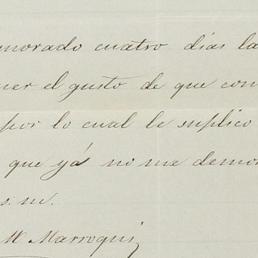 morado cuatro días la
ner el gusto de que con
por lo cual le suplico
que yá no me demor
s. m.
M Marroqui